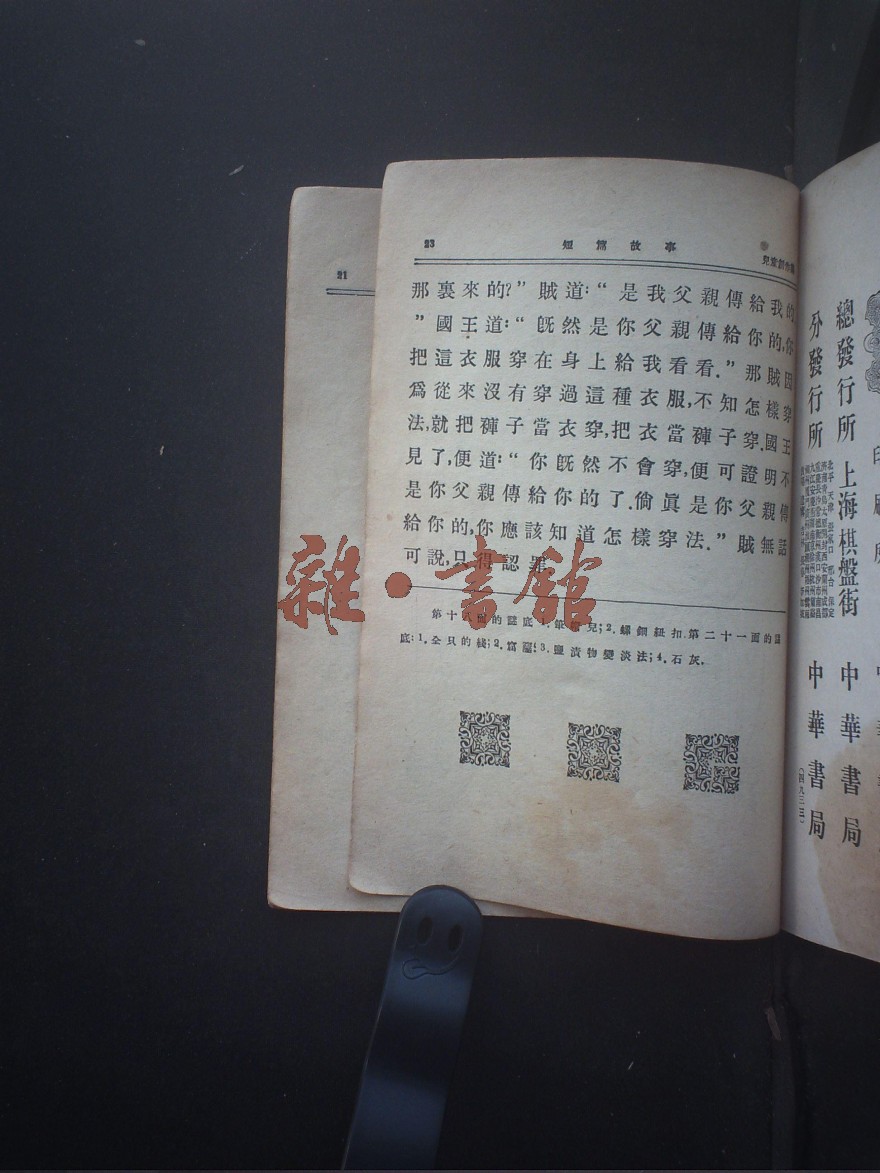 21
23 短篇故事 兒童創作集
那裏來的?”賊道:“是我父親傳給我的
”國王道:“旣然是你父親傳給你的,你
把這衣服穿在身上給我看看.”那賊因
爲從來沒有穿過這種衣服,不知怎樣穿
法,就把褲子當衣穿,把衣當褲子穿.國王
見了,便道:“你旣然不會穿,便可證明不
是你父親傳給你的了.倘眞是你父親傳
給你的,你應該知道怎樣穿法.”賊無話
可說,只得認罪
第十八面的謎底:1.筆兒;2.螺鈿紐扣.第二十一面的謎
底:1.全只的棧;2.富蘭;3.鹽漬物變淡法;4.石灰.
雜·書館
印刷所
總發行所 上海棋盤街 中華書局
分發行所 中華書局